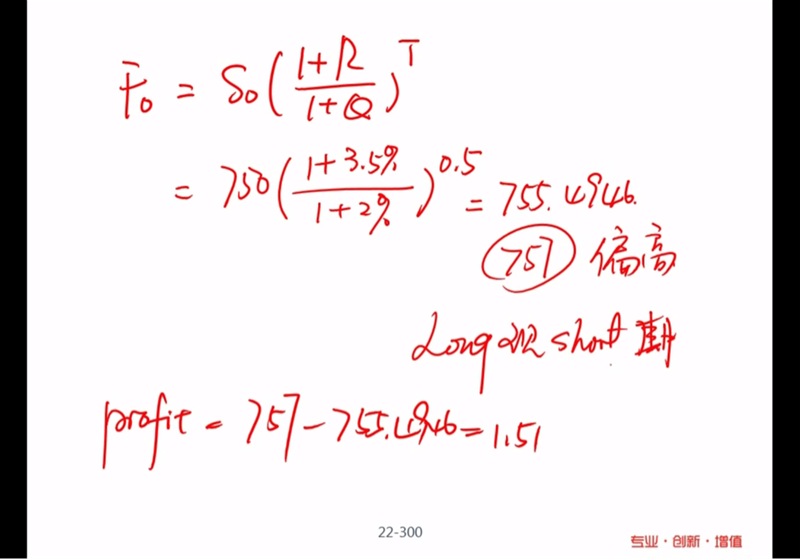 F₀ = S₀((1+R)/(1+Q))^T
= 750((1+3.5%)/(1+2%))^0.5 = 755.4946.
757 偏高
Long现 short 期
profit = 757 - 755.4946 = 1.51
22-300
专业·创新·增值